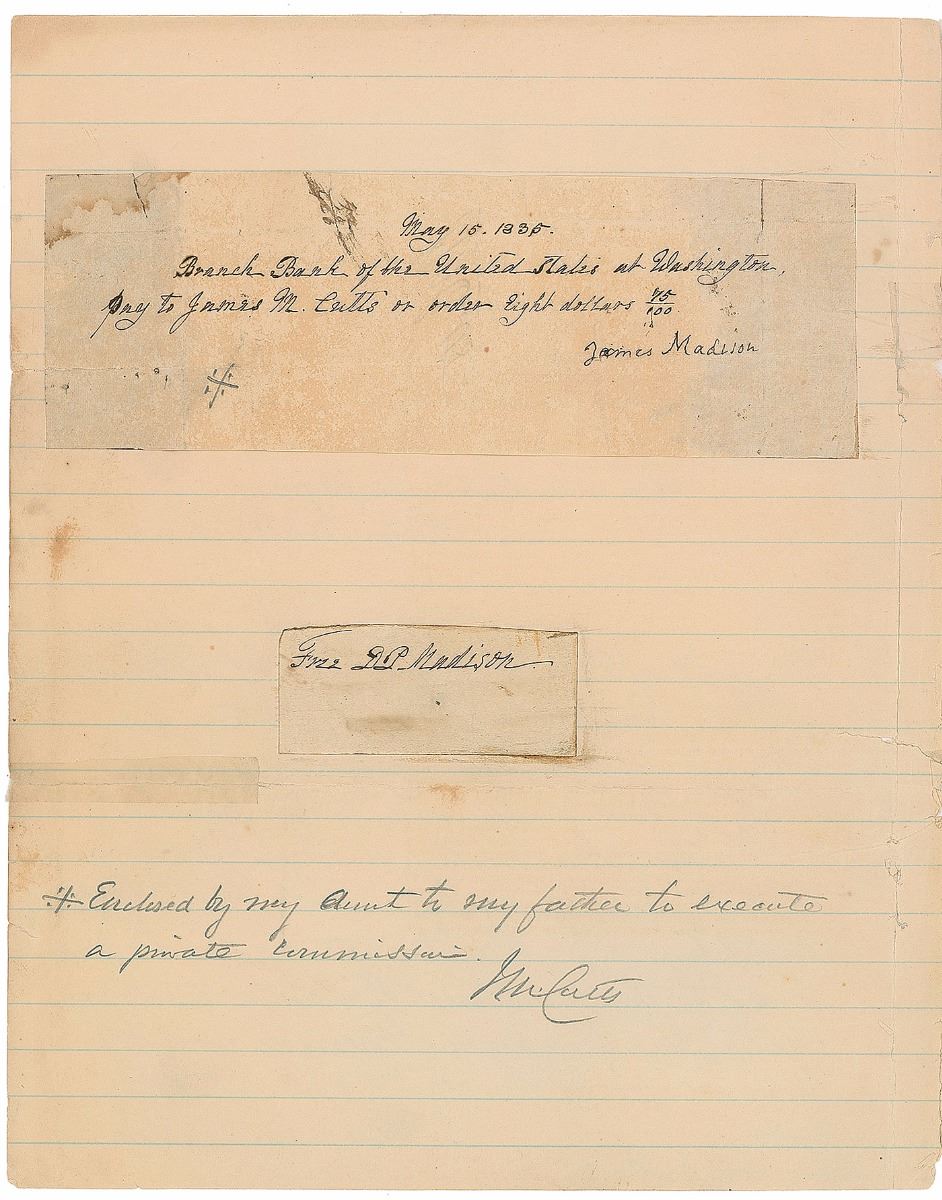 May 15. 1835.
Branch Bank of the United States at Washington,
Pay to James M. Cutts or order Eight dollars 75/100
James Madison
※
Free DP Madison
※ Enclosed by my Aunt to my father to execute
a private commission.
J M Cutts